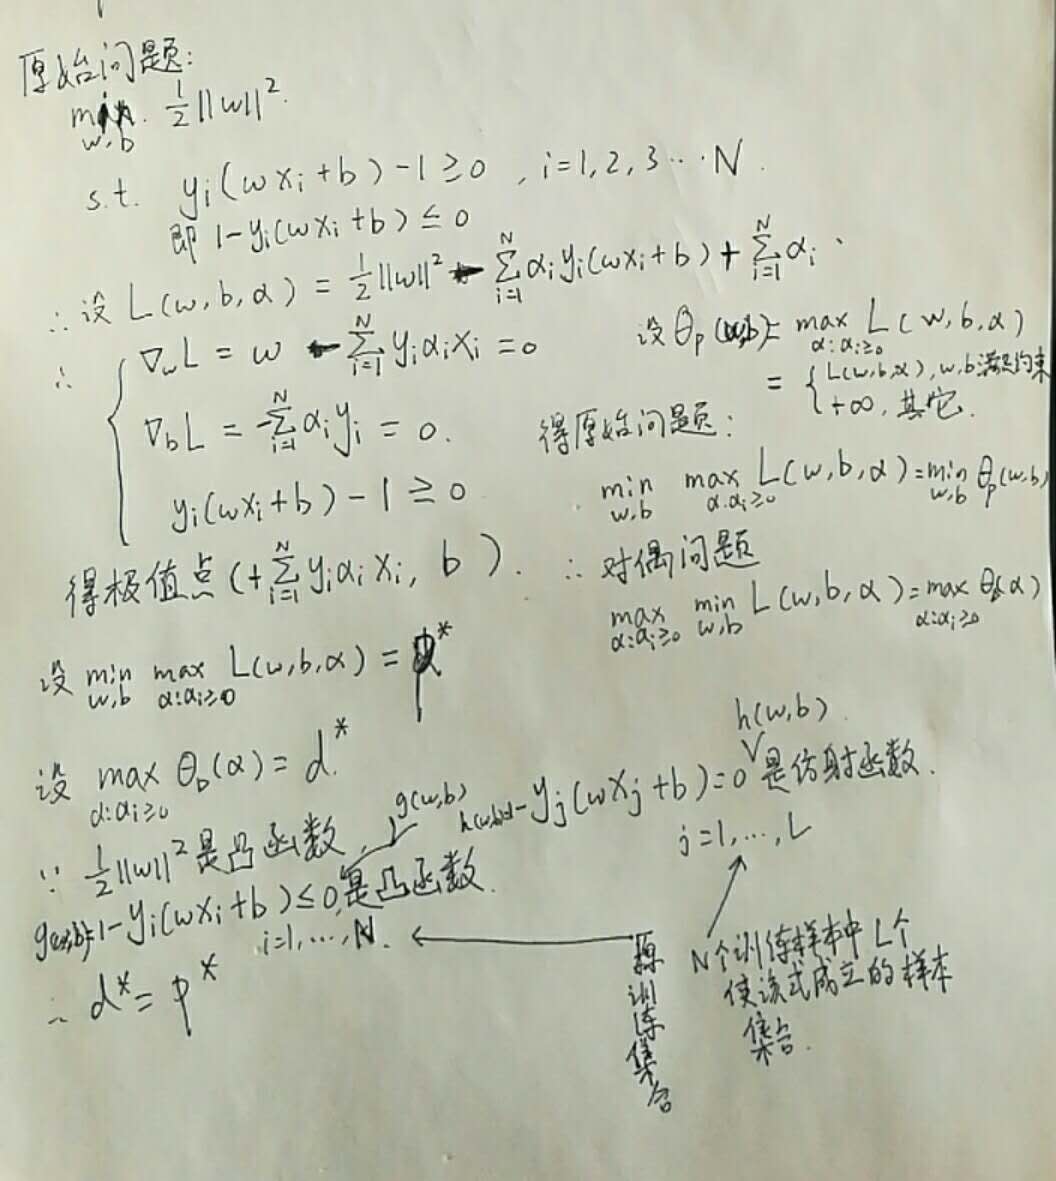 原始问题:
min 1/2||w||².
w,b
s.t. yi(wxi+b)-1≥0 , i=1,2,3…N.
即 1-yi(wxi+b)≤0
∴设 L(w,b,α) = 1/2||w||² - Σ_{i=1}^{N} αiyi(wxi+b) + Σ_{i=1}^{N} αi
∴ { ∇wL = w - Σ_{i=1}^{N} yiαixi = 0
∇bL = -Σ_{i=1}^{N} αiyi = 0.
yi(wxi+b)-1≥0
得极值点(+Σ_{i=1}^{N} yiαixi, b).
设 θp(w,b)= max_{α:αi≥0} L(w,b,α)
= { L(w,b,α), w,b满足约束
+∞, 其它.
得原始问题:
min_{w,b} max_{α:αi≥0} L(w,b,α)=min_{w,b} θp(w,b)
∴对偶问题
max_{α:αi≥0} min_{w,b} L(w,b,α)=max_{α:αi≥0} θD(α)
设 min_{w,b} max_{α:αi≥0} L(w,b,α) = p*
设 max_{α:αi≥0} θD(α) = d*.
∵ 1/2||w||²是凸函数,
g(w,b)
g(w,b)=1-yi(wxi+b)≤0,是凸函数.
i=1,…,N.
h(w,b)
h(w,b)=1-yj(wxj+b)=0是仿射函数.
j=1,…,L
原训练集合
N个训练样本中L个
使该式成立的样本
集合.
∴ d*=p*